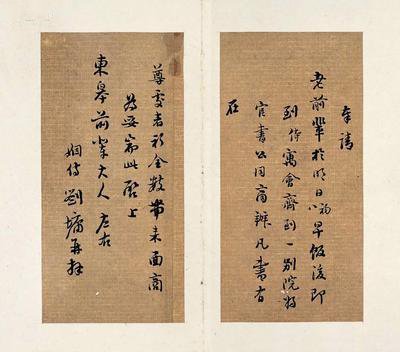 奉請
老前輩於明日初八早飯後即
到侍寓會齊到一別院將
官書公同商辦凡書有
在
尊處者祈全數帶來面商
為妥耑此啓上
東皋前輩大人左右
姻侍劉墉再拜